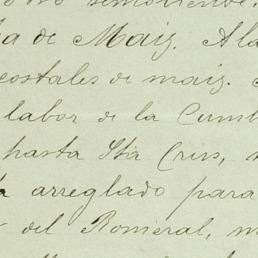 de Maiz. A la
costales de maiz.
labor de la Cumb
hasta Sta Cruz,
arreglado para
del Romeral, m